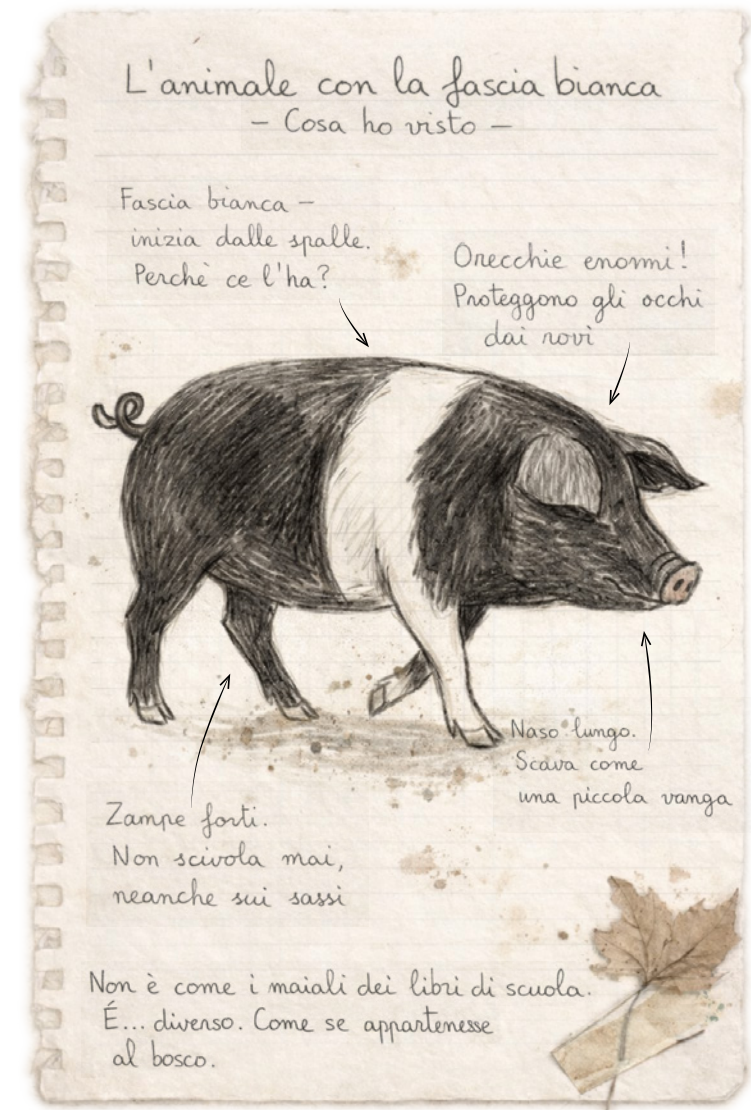 L'animale con la fascia bianca
– Cosa ho visto –
Fascia bianca –
inizia dalle spalle.
Perchè ce l'ha?
Orecchie enormi!
Proteggono gli occhi
dai rovi
Naso lungo.
Scava come
una piccola vanga
Zampe forti.
Non scivola mai,
neanche sui sassi
Non è come i maiali dei libri di scuola.
É... diverso. Come se appartenesse
al bosco.